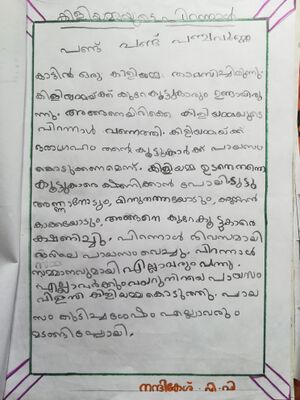 കിളിയമ്മയുടെ പിറന്നാൾ
പണ്ട് പണ്ട് പഞ്ചവർണ്ണ
കാട്ടിൽ ഒരു കിളിയമ്മ താമസിച്ചിരുന്നു.
കിളിയമ്മയ്ക്ക് കുറേ കൂട്ടുകാരും ഉണ്ടായിരു
ന്നു. അങ്ങനെയിരിക്കെ കിളിയമ്മയുടെ
പിറന്നാൾ വന്നെത്തി. കിളിയമ്മയ്ക്ക്
ഒരാഗ്രഹം തന്റെ കൂട്ടുകാർക്ക് പായസം
കൊടുക്കണമെന്ന്. കിളിയമ്മ ഉടനെതന്നെ
കൂട്ടുകാരെ ക്ഷണിക്കാൻ പോയി
അണ്ണാനോടും, മിന്നുതത്തയോടും,
കാക്കയോടും, അങ്ങനെ കുറേ കൂട്ടുകാരെ
ക്ഷണിച്ചു. പിറന്നാൾ ദിവസമായി
പായസം വെച്ചു. പിറന്നാൾ
സമ്മാനവുമായി എല്ലാവരും വന്നു.
എല്ലാവർക്കും വയറുനിറയെ പായസം
കിളിയമ്മ കൊടുത്തു. പായ
സം കുടിച്ച ശേഷം എല്ലാവരും
മടങ്ങിപ്പോയി.
നന്ദികേശ്. കെ.പി